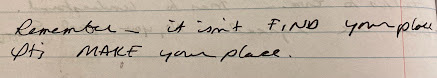 Remember - it isn't FIND your place
It's MAKE your place.